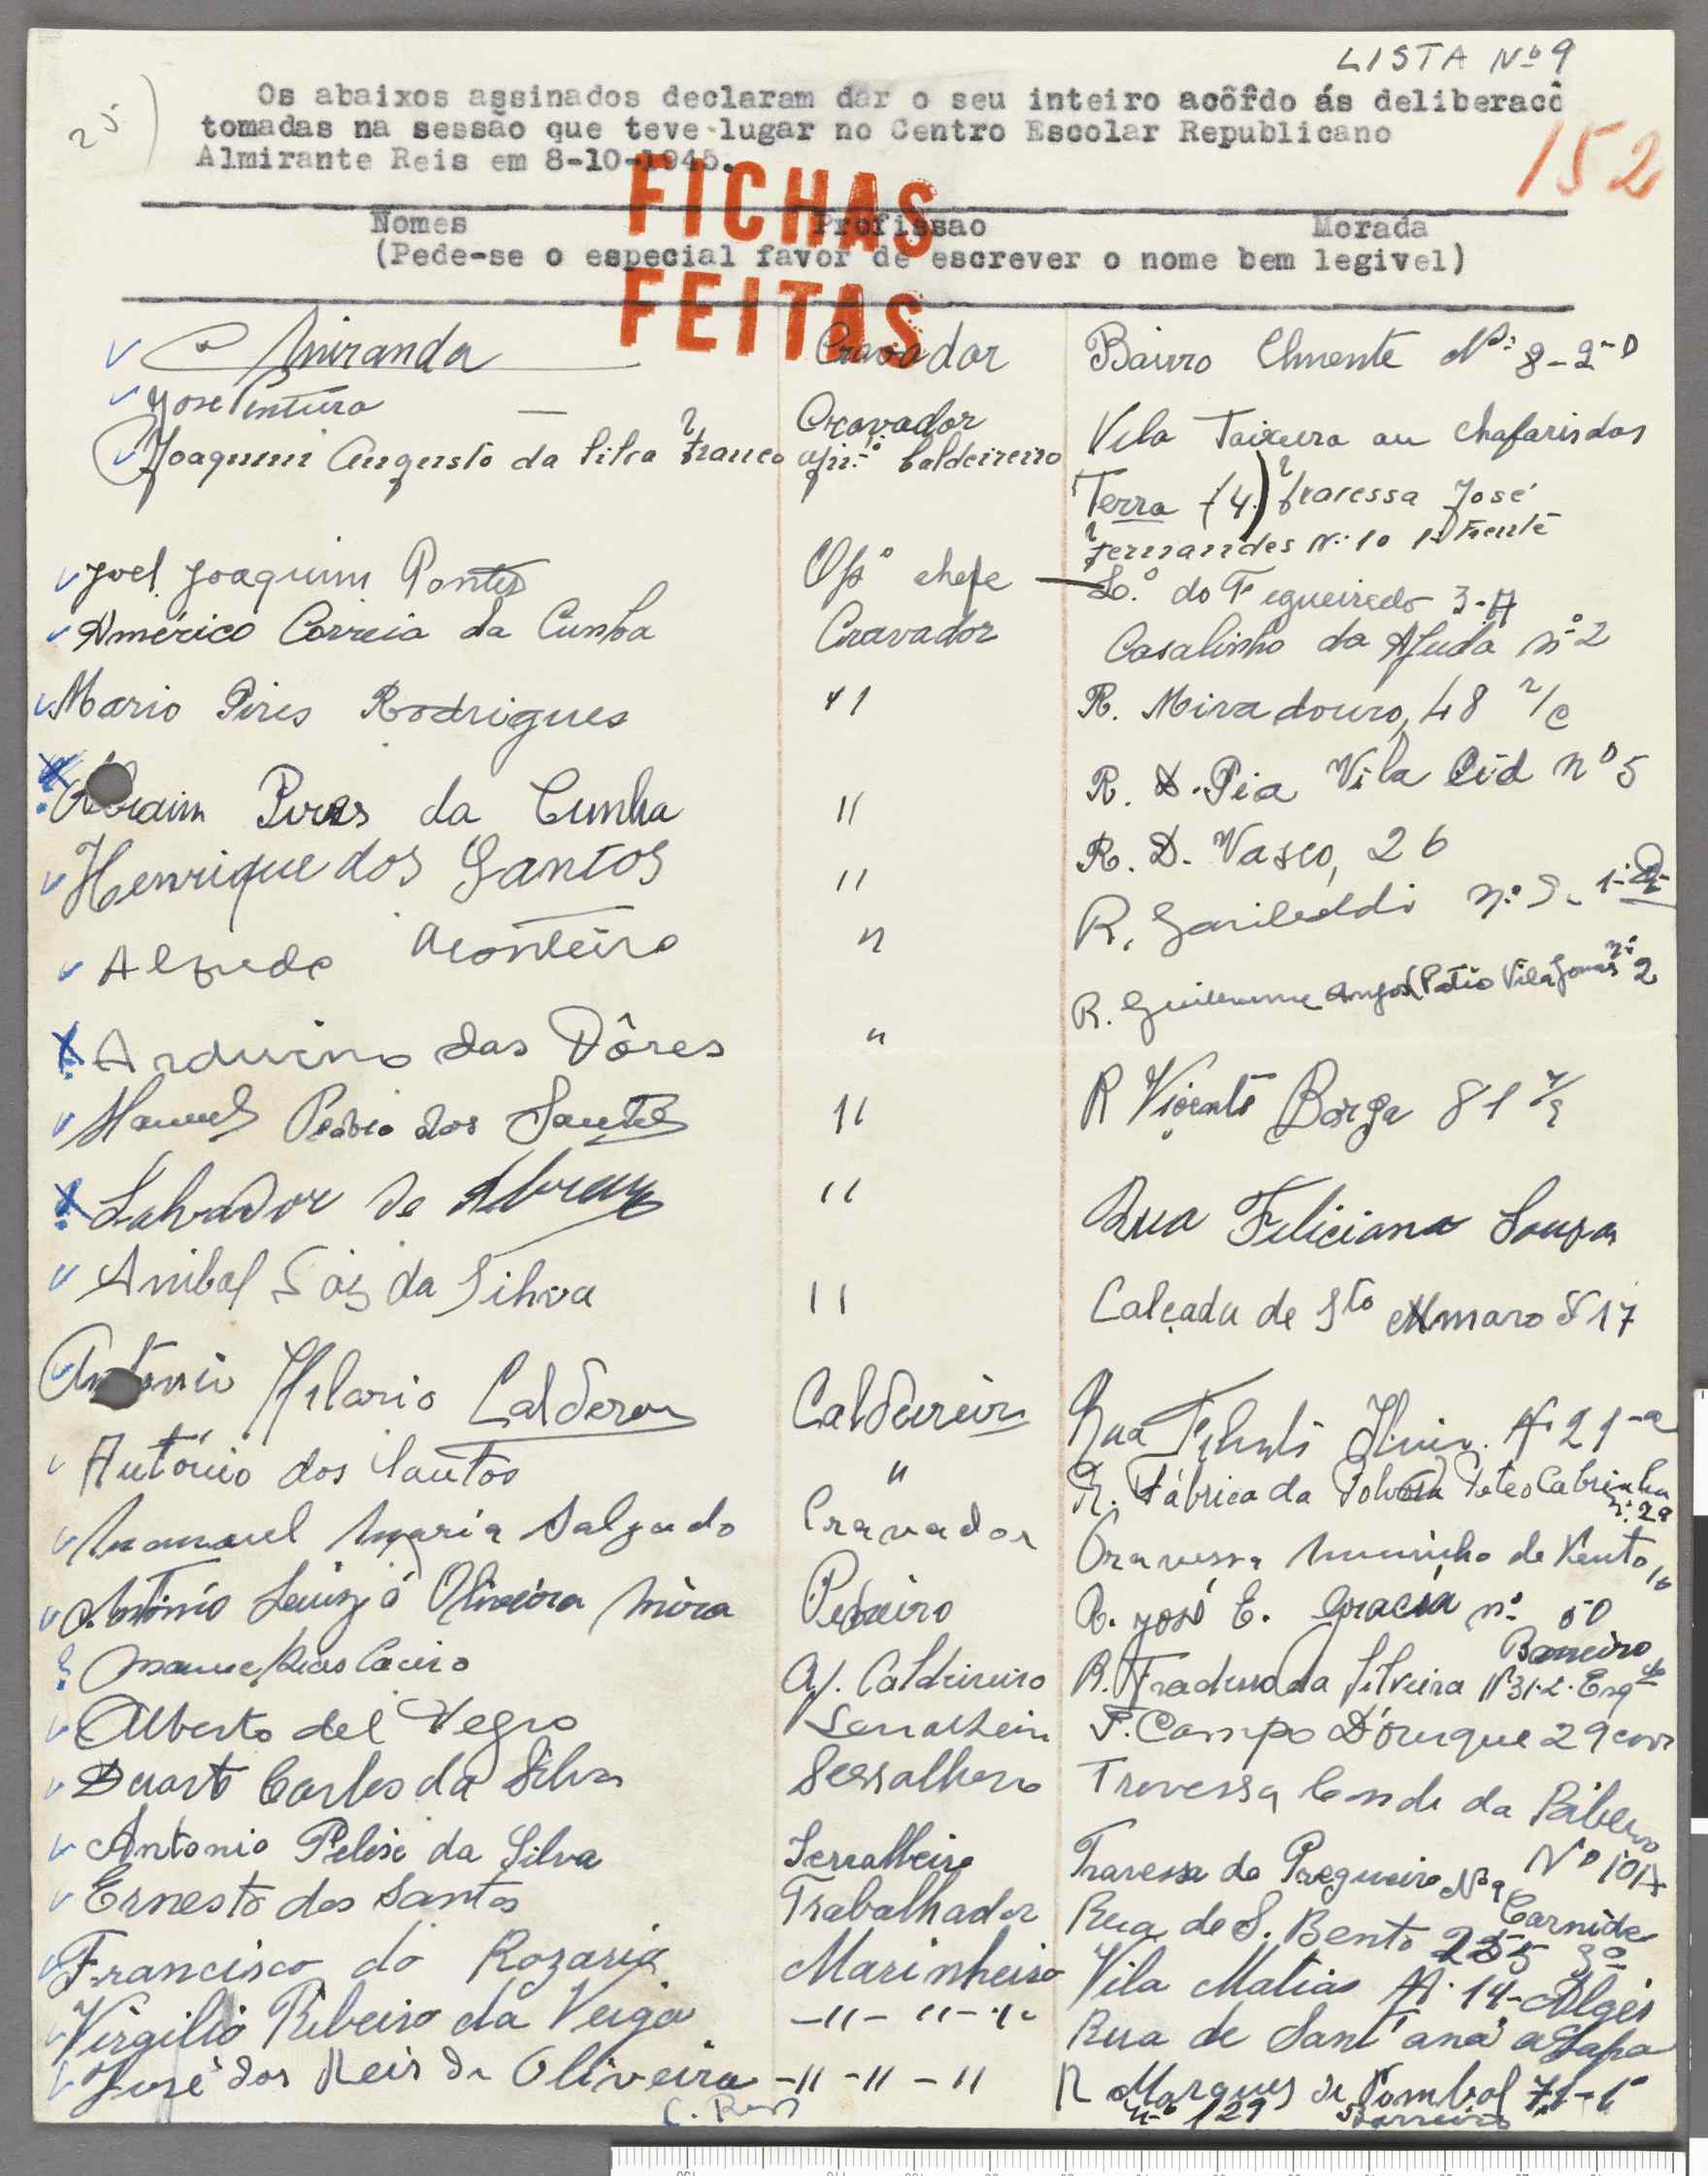 LISTA Nº 9
Os abaixos assinados declaram dar o seu inteiro acôrdo ás deliberacõ
152
tomadas na sessão que teve lugar no Centro Escolar Republicano
Almirante Reis em 8-10-1945.
FICHAS
FEITAS
Nomes Profissao Morada
(Pede-se o especial favor de escrever o nome bem legivel)
Miranda Cravador Bairro Clmente Nº 8-2-D
Jose Ventura Cravador Vila Taixeira au Chafarisdas
Joaquim Augusto da Silva Franco Caldeireiro
Terra (4) travessa José
Fernandes Nº 10 1º Frente
Joel Joaquim Pontes Opº chefe do Figueiredo 3-A
Américo Correia da Cunha Cravador Casalinho da Ajuda nº 2
Mario Pires Rodrigues " R. Miradouro, 48 r/c
Pires da Cunha " R. D. Pia Vila Cid nº 5
Henrique dos Santos " R. D. Vasco, 26
Alfredo Monteiro " R. Garibaldi nº
R. Guilherme Anjos Patio Vila nº 2
Arduino das Dôres "
Manuel Pedro dos Santos " R Vicente Borga 81 r/c
Salvador de Abreu " Rua Feliciana Sousa
Anibal da Silva " Calçada de Sto Amaro 17
Antonio Hilario Calderon Caldeireiro Rua 21-a
António dos Santos " R. Fábrica da Polvora Pateo Cabrinha nº 29
Manauel Maria Salgado Cravador Travessa Muinho de Vento 16
António Luiz Oliveira Mira Pedreiro R. José E. Gracia nº 50
Barreiro
Caldeireiro R. Fradesso da Silveira Nº 31-2- Esqº
Alberto del Negro Serralheiro P. Campo D'Ourique 29
Duarte Carlos da Silva Serralhero Trevessa Conde da Ribeira
Nº 10 A
Antonio da Silva Serralheiro Travessa do Pregueiro Nº 9 Carnide
Ernesto dos Santos Trabalhador Rua de S. Bento 255 3º
Francisco do Rozario Marinheiro Vila Matias Nº 14-Algés
Virgilio Ribeiro da Veiga -"- "-"- Rua de Sant'ana a Lapa
José dos Reis de Oliveira -"-"-" R Marques de Pombal 71-1º
nº 129 Barreiro